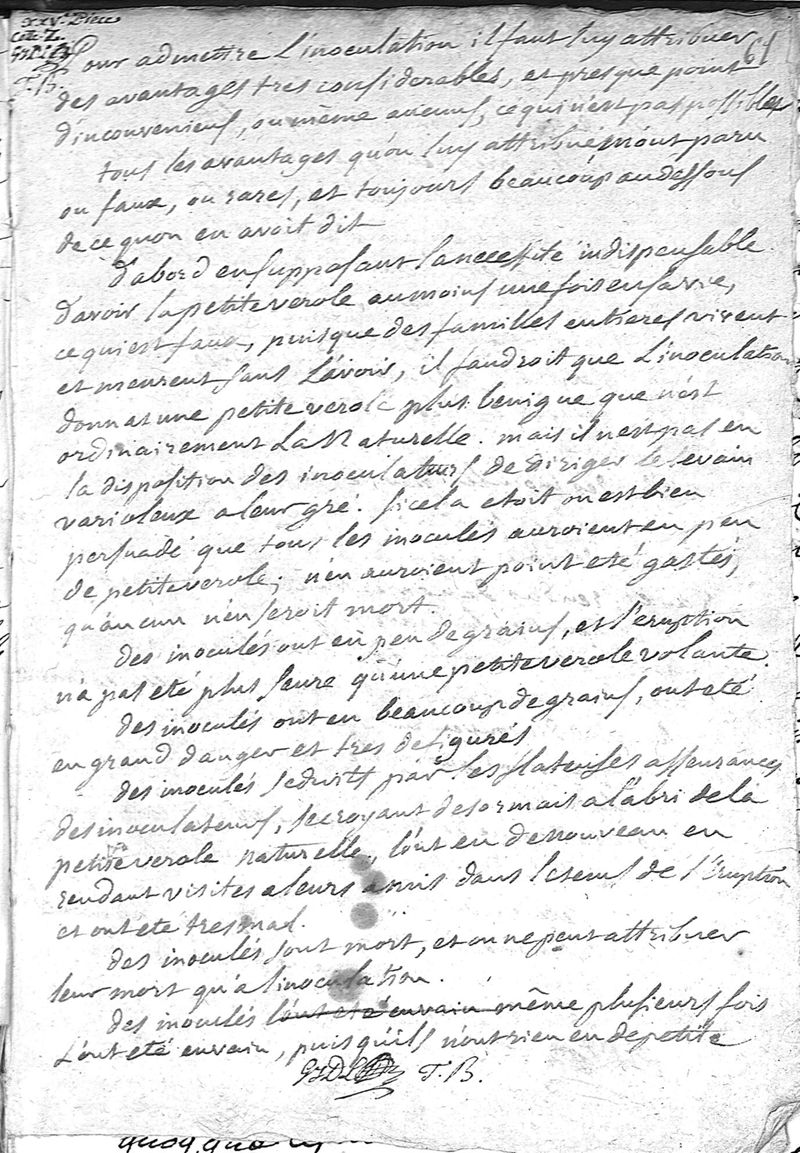 xxve Piece
Cotte Z.
G3DLC
T.B.
61
Pour admettre L'inoculation il faut luy attribuer
des avantages tres considerables, et presque point
d'inconveniens, ou même aucuns, ce qui n'est pas possible.
tous les avantages qu'on luy attribue m'ont paru
ou faux, ou rares, et toujours beaucoup au dessous
de ce qu'on en avoit dit
D'abord en supposant la necessité indispensable
d'avoir la petite verole au moins une fois en sa vie,
ce qui est faux, puisque des familles entieres vivent
et meurent sans L'avoir, il faudroit que L'inoculation
donnat une petite verole plus benigne que n'est
ordinairement La Naturelle. mais il n'est pas en
la disposition des inoculateurs de diriger le levain
varioleux a leur gré. si cela etoit on est bien
persuadé que tous les inoculés auroient eu peu
de petite verole; n'en auroient point eté gastés,
qu'aucun n'en seroit mort.
des inoculés ont eu peu de grains, et l'eruption
n'a pas eté plus seure qu'une petite verole volante.
des inoculés ont eu beaucoup de grains, ont eté
en grand danger et tres defigurés
des inoculés seduits par les flateuses asseurances
des inoculateurs, se croyant desormais a l'abri de la
petite verole naturelle, l'ont eu de nouveau en
rendant visites a leurs amis dans le tems de l'Eruption
et ont eté tres mal.
des inoculés sont mort, et on ne peut attribuer
leur mort qu'a l'inoculation.
des inoculés l'ont eté en vain même plusieurs fois
L'ont eté en vain, puisqu'ils n'ont rien eu de petite
G3DL T.B.
quoy que